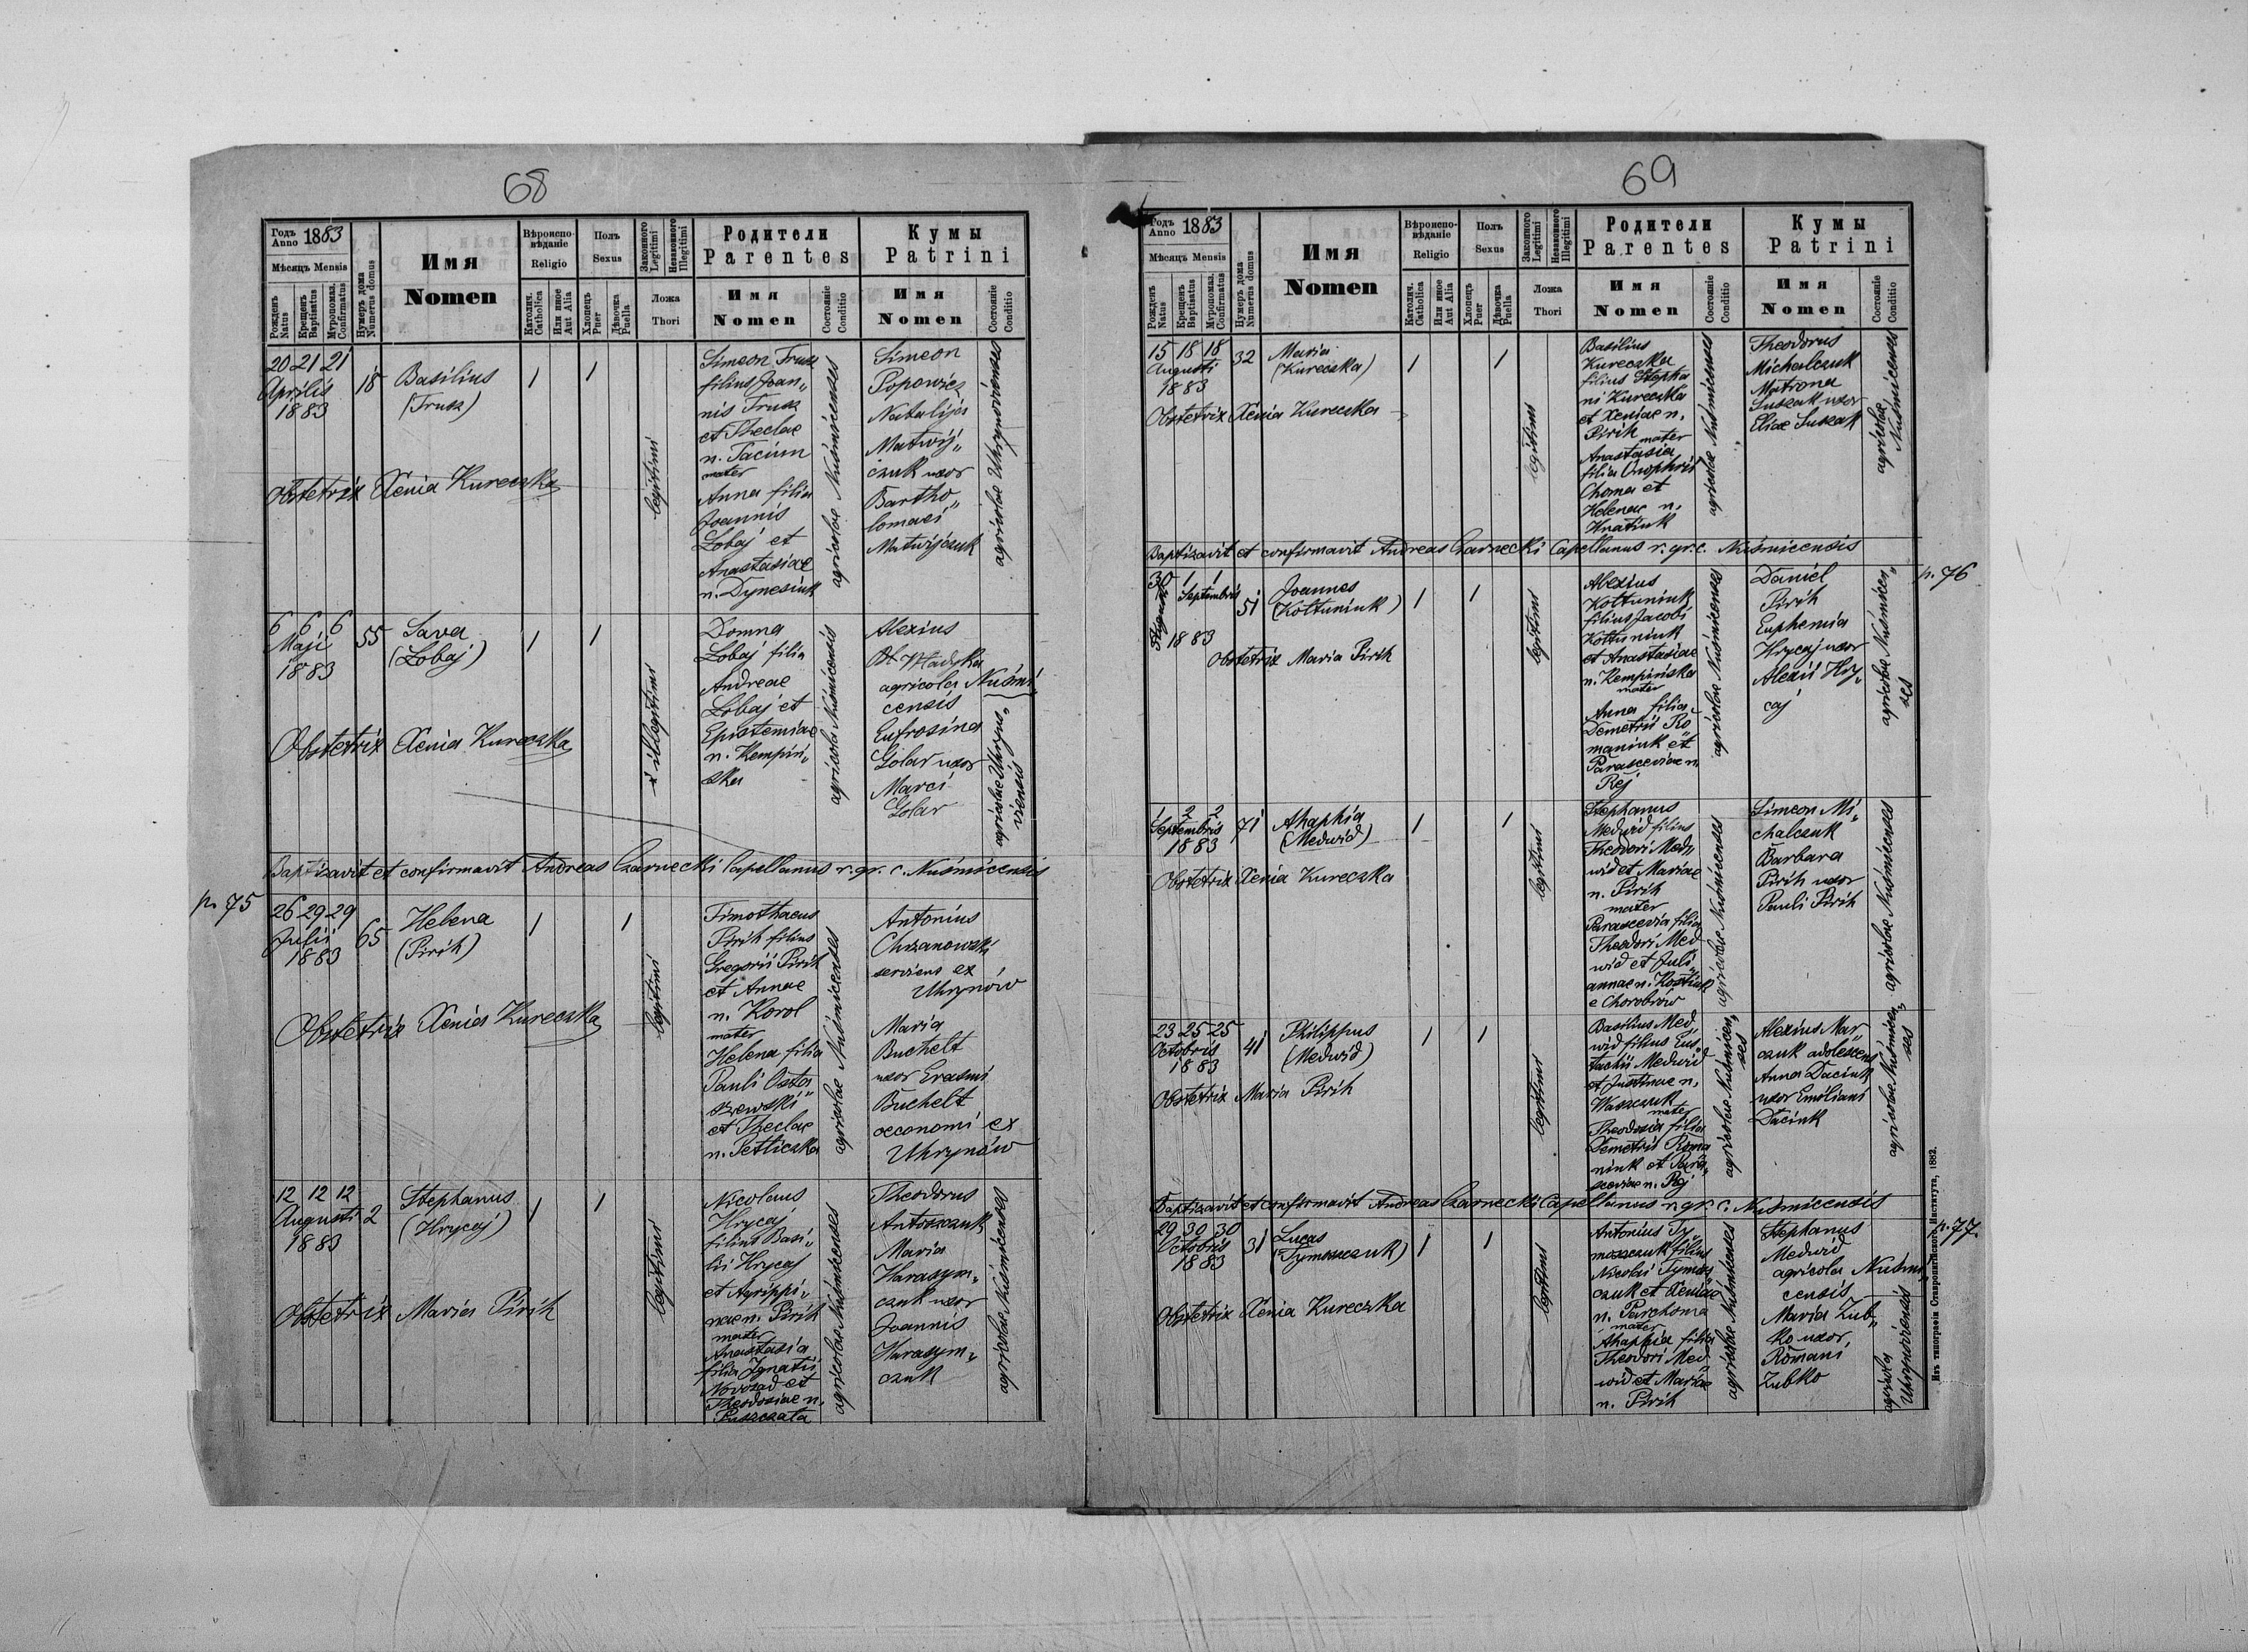 68
Годъ Anno 1883
Мѣсяцъ Mensis
Рожденъ Natus
Крещенъ Baptisatus
Муропомаз. Confirmatus
Нумеръ дома Numerus domus
Имя
Nomen
Вѣроиспо-
вѣданіе
Religio
Католич. Catholica
Или иное Aut Alia
Полъ
Sexus
Хлопецъ Puer
Дѣвочка Puella
Законного Legitimi
Незаконного Illegitimi
Ложа
Thori
Родители
Parentes
Имя
Nomen
Состояніе Conditio
Кумы
Patrini
Имя
Nomen
Состояніе Conditio
20 21 21
Aprilis
1883
18
Basilius
(Trusz)
1
1
legitimi
Simeon Trusz
filius Joan„
nis Trusz
et Theclae
n. Tacium
mater
Anna filia
Joannis
Lobaj et
Anastasiae
n. Dynesiuk
agricolae Nuśmicenses
Simeon
Popowicz
Natalija
Matwij„
czuk uxor
Bartho„
lomaei
Matwijczuk
agricolae Uhrynovienses
Obstetrix Xenia Kureczka
6 6 6
Maji
1883
55
Sava
(Lobaj)
1
1
illegitimi
Domna
Lobaj filia
Andreae
Lobaj et
Epistemiae
n. Kempiń„
ska
agricola Nuśmicensis
Alexius
Władyka
agricola Nuśmi„
censis
Eufrosina
Golar uxor
Marci
Golar
agricolae Uhryno„
viensis
Obstetrix Xenia Kureczka
Baptizavit et confirmavit Andreas Czarnecki Capellanus r. gr. c. Nuśmicensis
p. 75
26 29 29
Julii
1883
65
Helena
(Pirih)
1
1
legitimi
Timothaeus
Pirih filius
Gregorii Pirih
et Annae
n. Korol
mater
Helena filia
Pauli Osta„
szewski
et Theclae
n. Petliczka
agricolae Nuśmicenses
Antonius
Chrzanowski
serviens ex
Uhrynów
Maria
Buchelt
uxor Erasmi
Buchelt
oeconomi ex
Uhrynów
Obstetrix Xenia Kureczka
12 12 12
Augusti
1883
2
Stephanus
(Hrycaj)
1
1
legitimi
Nicolaus
Hrycaj
filius Basi„
lii Hrycaj
et Agrippi„
nae n. Pirih
mater
Anastasia
filia Ignatii
Novosad et
Theodosiae n.
Puszczata
agricolae Nuśmicenses
Theodorus
Antoszczuk
Maria
Harasym„
czuk uxor
Joannis
Harasym„
czuk
agricolae Nuśmicenses
Obstetrix Maria Pirih
69
Годъ Anno 1883
Мѣсяцъ Mensis
Рожденъ Natus
Крещенъ Baptisatus
Муропомаз. Confirmatus
Нумеръ дома Numerus domus
Имя
Nomen
Вѣроиспо-
вѣданіе
Religio
Католич. Catholica
Или иное Aut Alia
Полъ
Sexus
Хлопецъ Puer
Дѣвочка Puella
Законного Legitimi
Незаконного Illegitimi
Ложа
Thori
Родители
Parentes
Имя
Nomen
Состояніе Conditio
Кумы
Patrini
Имя
Nomen
Состояніе Conditio
15 18 18
Augusti
1883
32
Maria
(Kureczka)
1
1
legitimi
Basilius
Kureczka
filius Stepha
ni Kureczka
et Xeniae n.
Pirih
mater
Anastasia
filia Onophrii
Choma et
Helenae n.
Hnatiuk
agricolae Nuśmicenses
Theodorus
Michalczuk
Matrona
Suszak uxor
Eliae Suszak
agricolae
Nuśmicenses
Obstetrix Xenia Kureczka
Baptizavit et confirmavit Andreas Czarnecki Capellanus r. gr. c. Nuśmicensis
p. 76
30 1 1
Augusti
Septembris
1883
51
Joannes
(Kołtuniuk)
1
1
legitimi
Alexius
Kołtuniuk
filius Jacobi
Kołtuniuk
et Anastasiae
n. Kempińska
mater
Anna filia
Demetrii Ro„
maniuk et
Parasceviae n.
Rej
agricolae Nuśmicenses
Daniel
Pirih
Euphemia
Hrycaj uxor
Alexii Hry„
caj
agricolae Nuśmicen„
ses
Obstetrix Maria Pirih
1 2 2
Septembris
1883
71
Ahaphia
(Medwid)
1
1
legitimi
Stephanus
Medwid filius
Theodori Med„
wid et Mariae
n. Pirih
mater
Parascevia filia
Theodori Med„
wid et Juli„
annae n. Kostiuk
e Chorobrów
agricolae Nuśmicenses
Simeon Mi„
chalczuk
Barbara
Pirih uxor
Pauli Pirih
agricolae Nuśmicenses
Obstetrix Xenia Kureczka
23 25 25
Octobris
1883
41
Philippus
(Medwid)
1
1
legitimi
Basilius Med„
wid filius Eus„
tachii Medwid
et Justinae n.
Waszczuk
mater
Theodosia filia
Demetrii Roma
niuk et Para„
sceviae n. Rej
agricolae Nuśmicen„
ses
Alexius Mar„
czuk adolescens
Anna Daciuk
uxor Emiliani
Daciuk
agricolae Nuśmicen„
ses
Obstetrix Maria Pirih
Baptizavit et confirmavit Andreas Czarnecki Capellanus r. gr. c. Nuśmicensis
p. 77.
29 30 30
Octobris
1883
31
Lucas
(Tymoszczuk)
1
1
legitimi
Antonius Ty„
moszczuk filius
Nicolai Tymosz
czuk et Xeniae
n. Parchoma
mater
Ahaphia filia
Theodori Med
wid et Mariae
n. Pirih
agricolae Nuśmicenses
Stephanus
Medwid
agricola Nuśmi„
censis
Maria Zub„
ko uxor
Romani
Zubko
agricola
Obstetrix Xenia Kureczka
Изъ типографіи Ставропигійского Института, 1882.